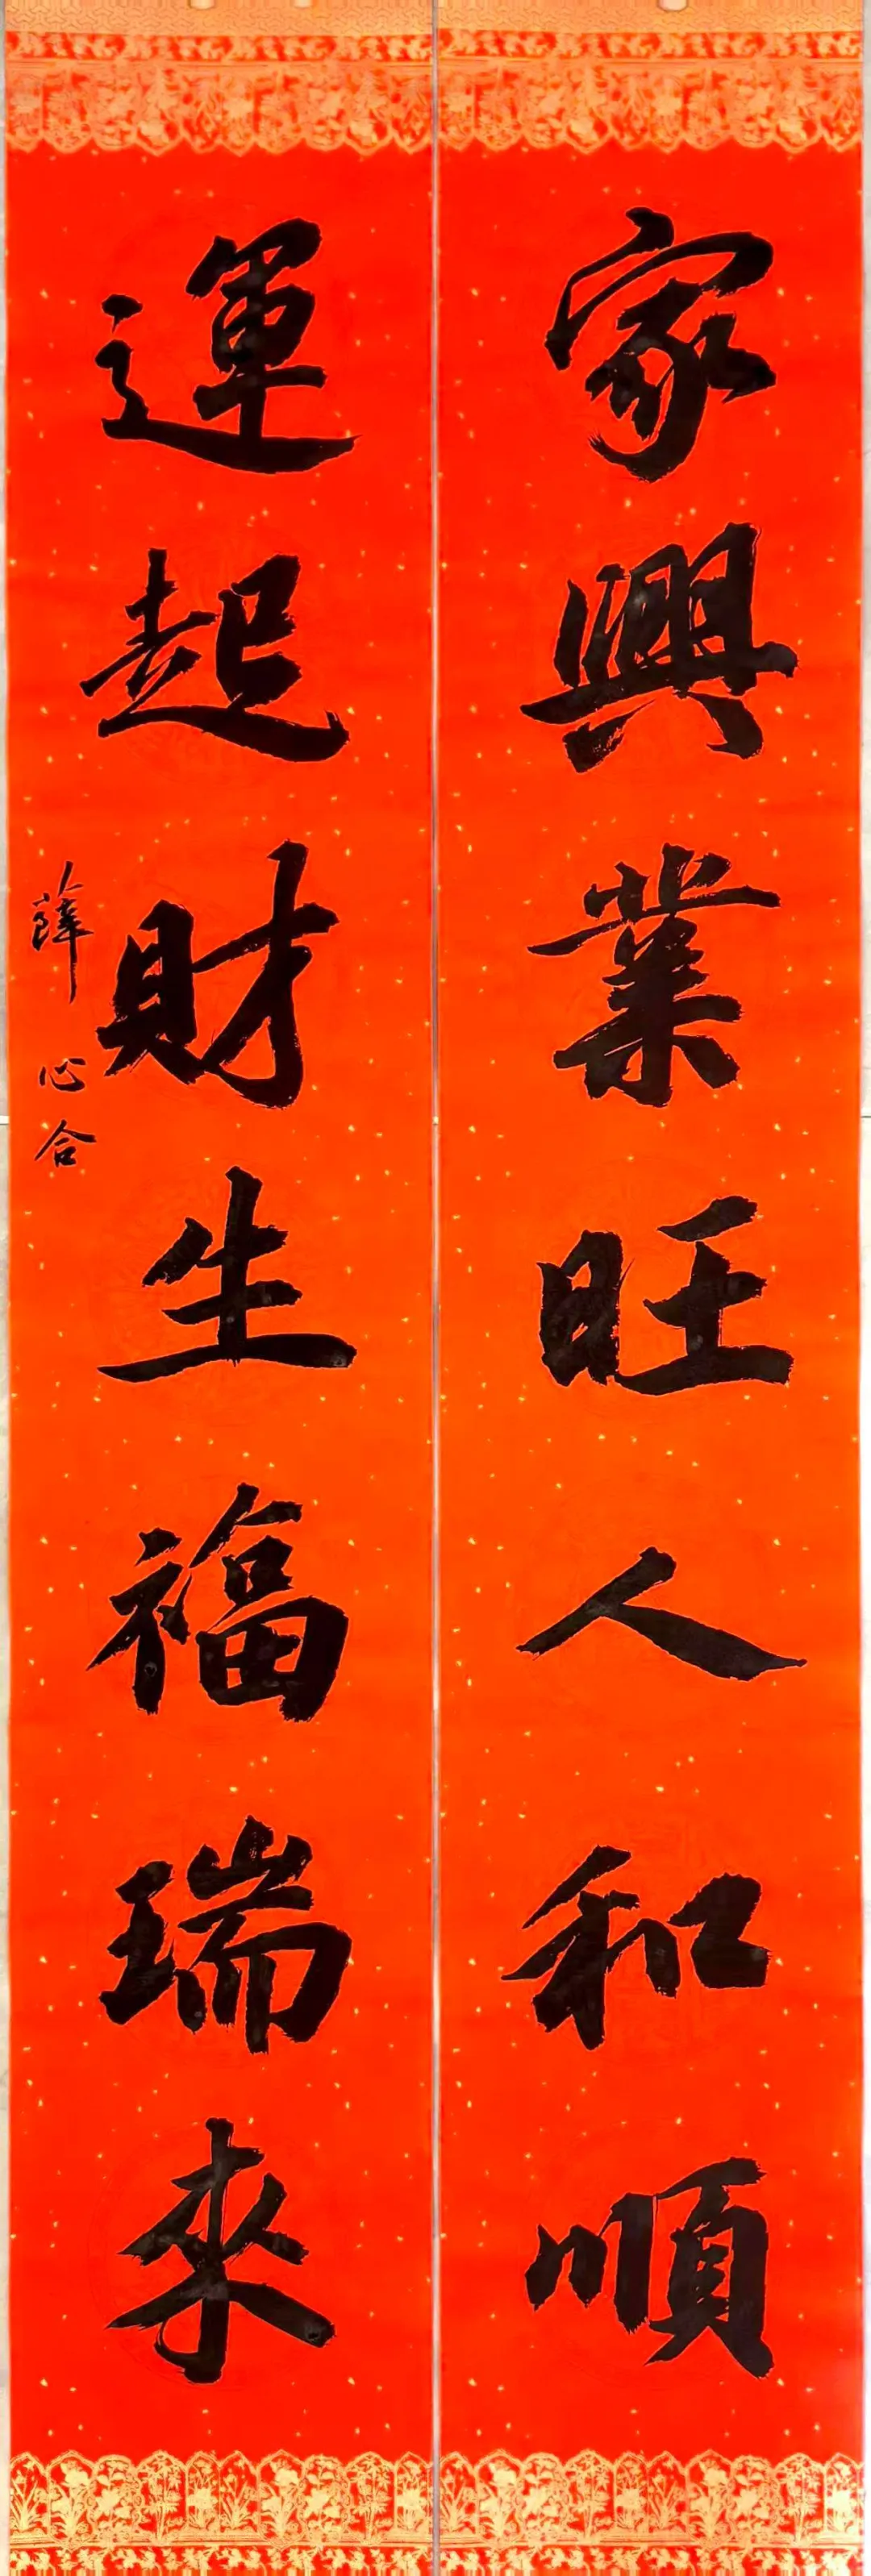 家興業旺人和順
運起財生福瑞來
薛心合